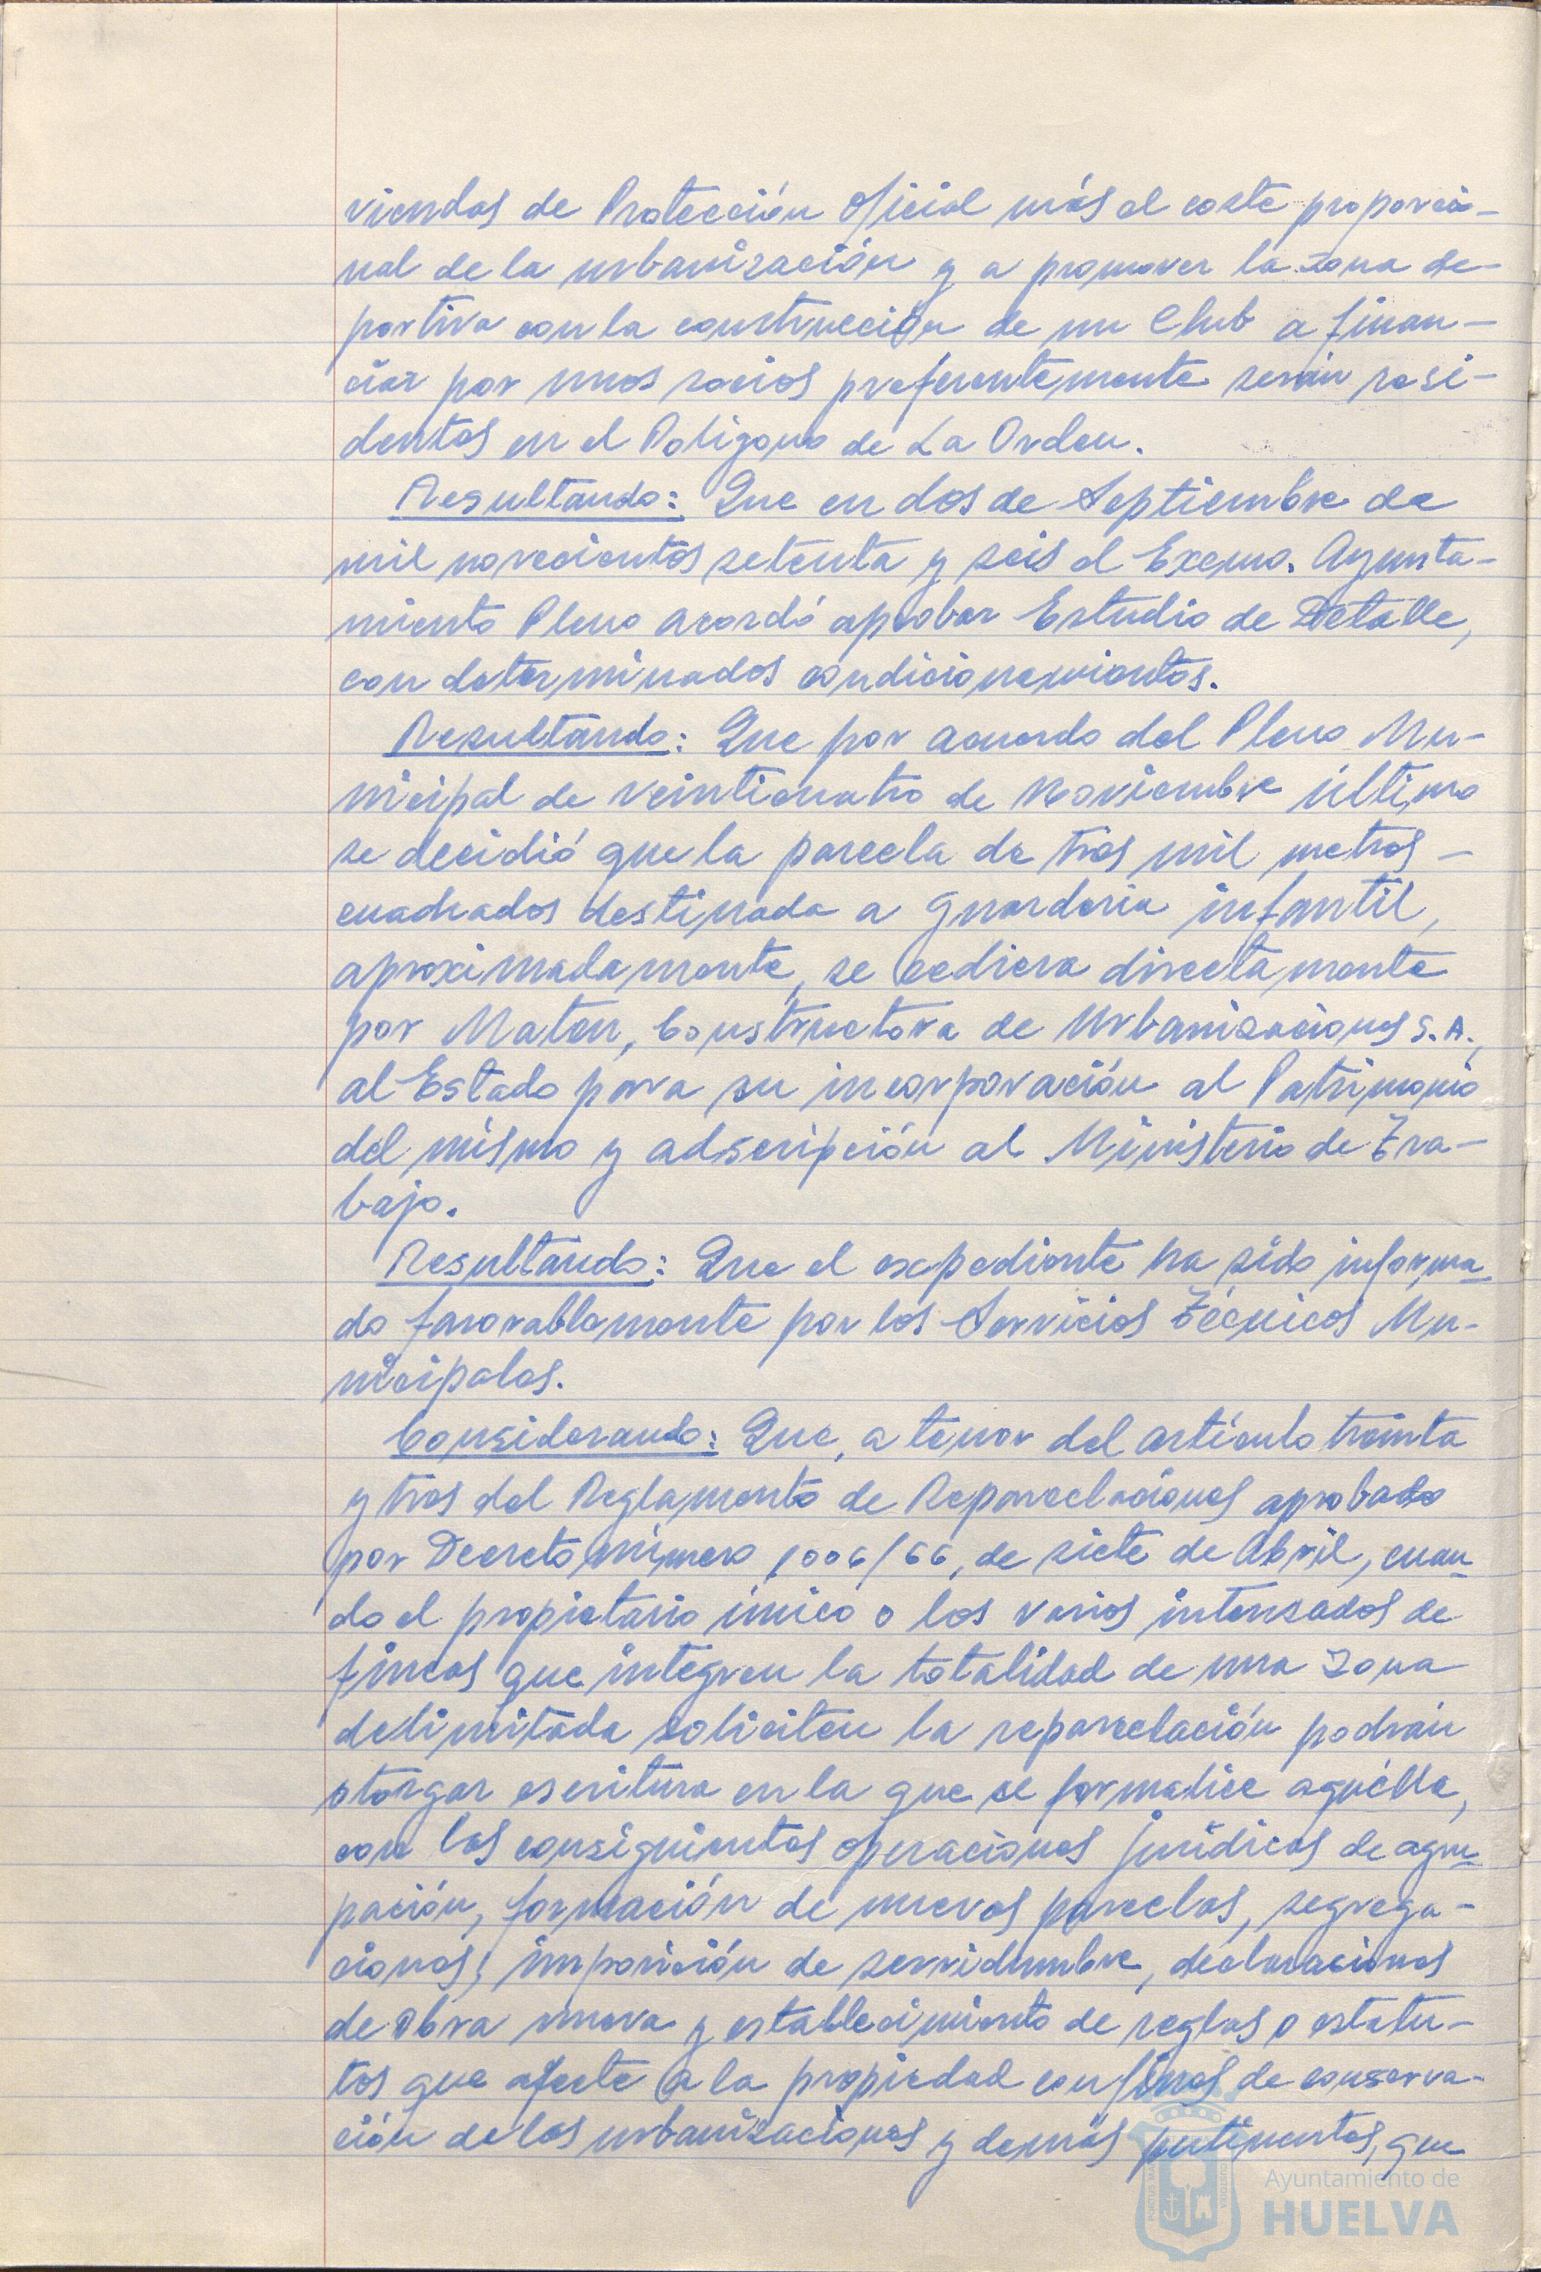 viendas de Protección Oficial más el coste proporcio-
nal de la urbanización y a promover la zona de-
portiva con la construcción de un Club a finan-
ciar por unos socios preferentemente serán resi-
dentes en el Polígono de La Orden.
Resultando: Que en dos de Septiembre de
mil novecientos setenta y seis el Excmo. Ayunta-
miento Pleno acordó aprobar Estudio de Detalle,
con determinados condicionamientos.
Resultando: Que por acuerdo del Pleno Mu-
nicipal de veinticuatro de Noviembre último
se decidió que la parcela de tres mil metros -
cuadrados destinada a guardería infantil,
aproximadamente, se cediera directamente
por Maten, Constructora de Urbanizaciones S.A.,
al Estado para su incorporación al Patrimonio
del mismo y adscripción al Ministerio de Tra-
bajo.
Resultando: Que el expediente ha sido informa-
do favorablemente por los Servicios Técnicos Mu-
nicipales.
Considerando: Que, a tenor del artículo treinta
y tres del Reglamento de Reparcelaciones aprobado
por Decreto número 1006/66, de siete de Abril, cuan-
do el propietario único o los varios intersados de
fincas que integren la totalidad de una zona
delimitada soliciten la reparcelación podrán
otorgar escritura en la que se formalice aquélla,
con las consiguientes operaciones jurídicas de agru-
pación, formación de nuevas parcelas, segrega-
ciones, imposición de servidumbre, declaraciones
de obra nueva y establecimiento de reglas o estatu-
tos que afecte a la propiedad con fines de conserva-
ción de las urbanizaciones y demás pertinentes, que
Ayuntamiento de
HUELVA